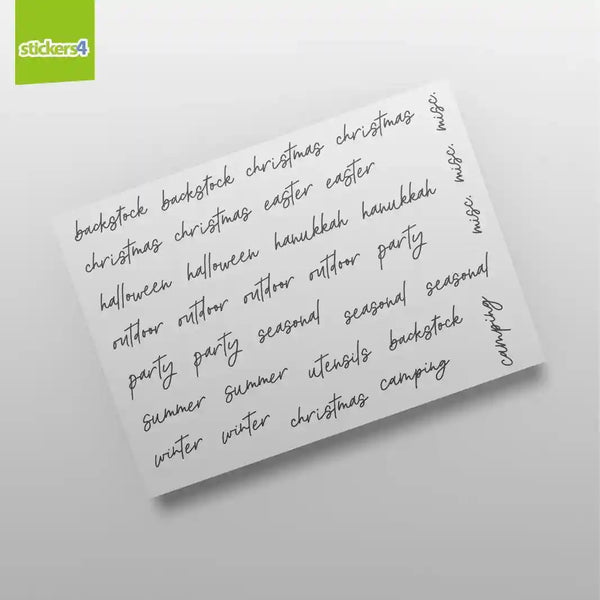 stickers4
backstock backstock christmas christmas
christmas christmas easter easter
halloween halloween hanukkah hanukkah
outdoor outdoor outdoor outdoor party
party party seasonal seasonal seasonal
summer summer utensils backstock
winter winter christmas camping
misc. misc. misc.
camping